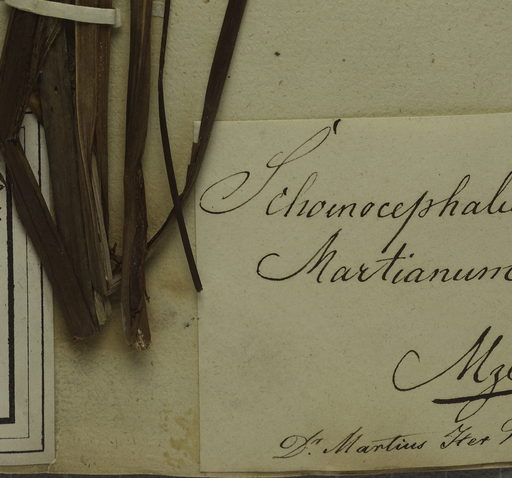 Schoinocephalu
Martianum
Mze
Dr. Martius Iter